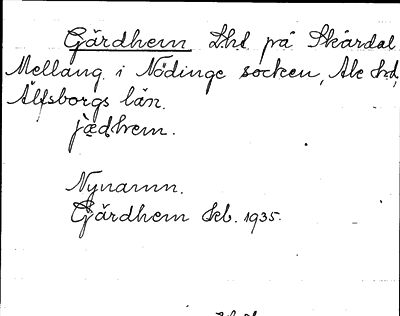 Gärdhem Lht på Skårdal
Mellang. i Nödinge socken, Ale hd,
Älfsborgs län.
jædhem.
Nynamn.
Gärdhem Skb. 1935.